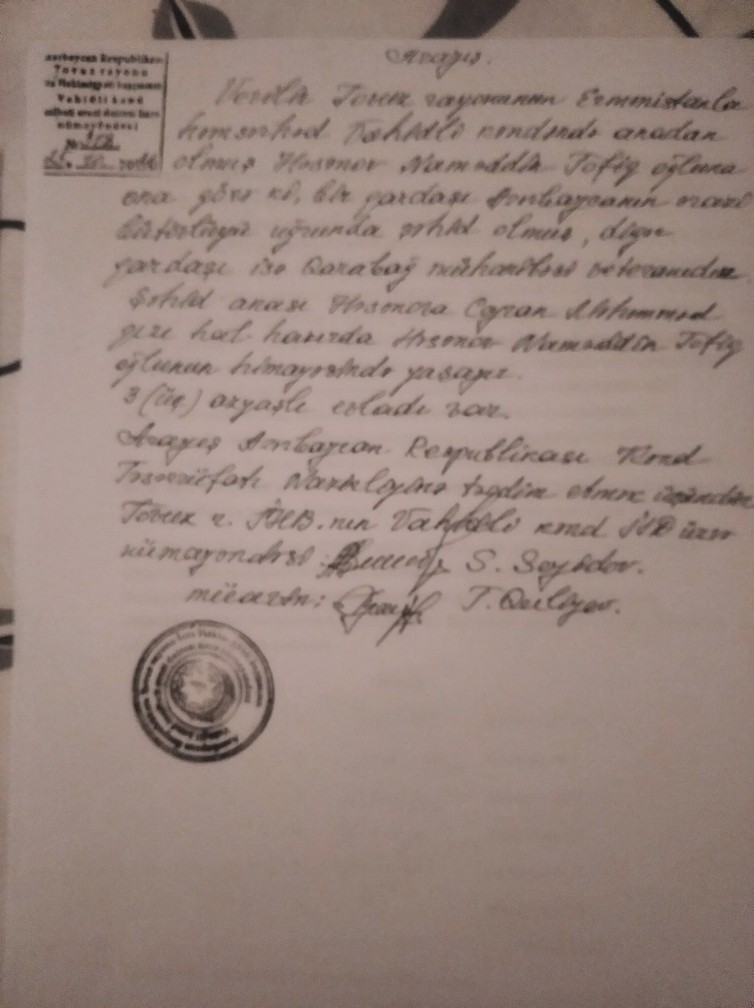 Azərbaycan Respublikası
Tovuz rayonu
İcra Hakimiyyəti başçısının
Vahidli kənd
ərazi dairəsi üzrə
nümayəndəsi
Arayış.
Verilir Tovuz rayonunun Ermənistanla
həmsərhəd Vahidli kəndində anadan
olmuş Həsənov Naməddin Tofiq oğluna
ona görə ki, bir qardaşı Azərbaycanın ərazi
bütövlüyü uğrunda şəhid olmuş, digər
qardaşı isə Qarabağ müharibəsi veteranıdır.
Şəhid anası Həsənova Ceyran Məhəmməd
qızı hal hazırda Həsənov Naməddin Tofiq
oğlunun himayəsində yaşayır.
3 (üç) azyaşlı övladı var.
Arayış Azərbaycan Respublikası Kənd
Təsərrüfatı Nazirliyinə təqdim etmək üçündür
Tovuz r. İHB.nın Vahidli kənd İƏD üzrə
nümayəndəsi: S. Seyidov.
mücavin: T. Quliyev.